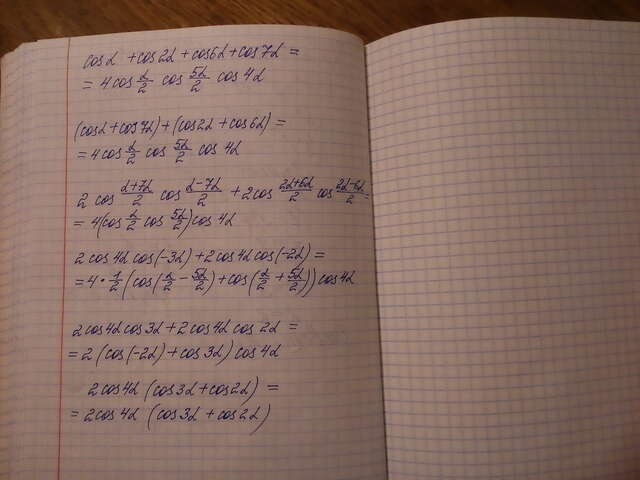 cosα + cos2α + cos6α + cos7α =
= 4cos α/2 cos 5α/2 cos 4α
(cosα + cos7α) + (cos2α + cos6α) =
= 4cos α/2 cos 5α/2 cos 4α
2 cos (α+7α)/2 cos (α-7α)/2 + 2cos (2α+6α)/2 cos (2α-6α)/2 =
= 4(cos α/2 cos 5α/2) cos 4α
2 cos 4α cos(-3α) + 2 cos 4α cos(-2α) =
= 4 · 1/2 (cos(α/2 - 5α/2) + cos(α/2 + 5α/2)) cos4α
2cos4α cos3α + 2cos4α cos 2α =
= 2 (cos(-2α) + cos 3α) cos 4α
2cos4α (cos3α + cos2α) =
= 2cos 4α (cos3α + cos2α)